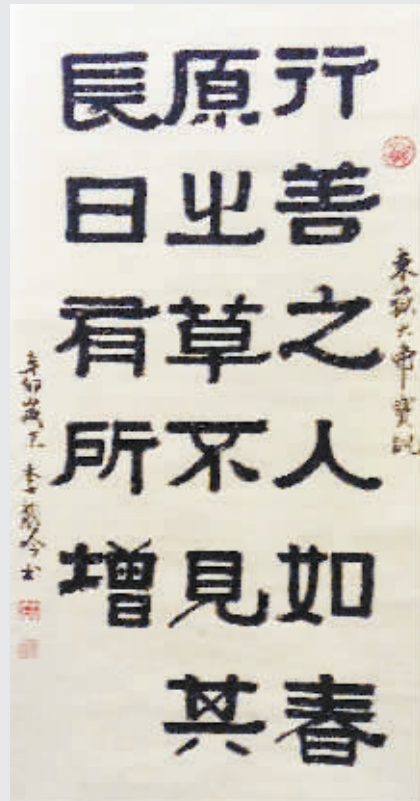 東嶽大帝寶訓
行善之人如春
原之草不見其
長日有所增
辛卯歲